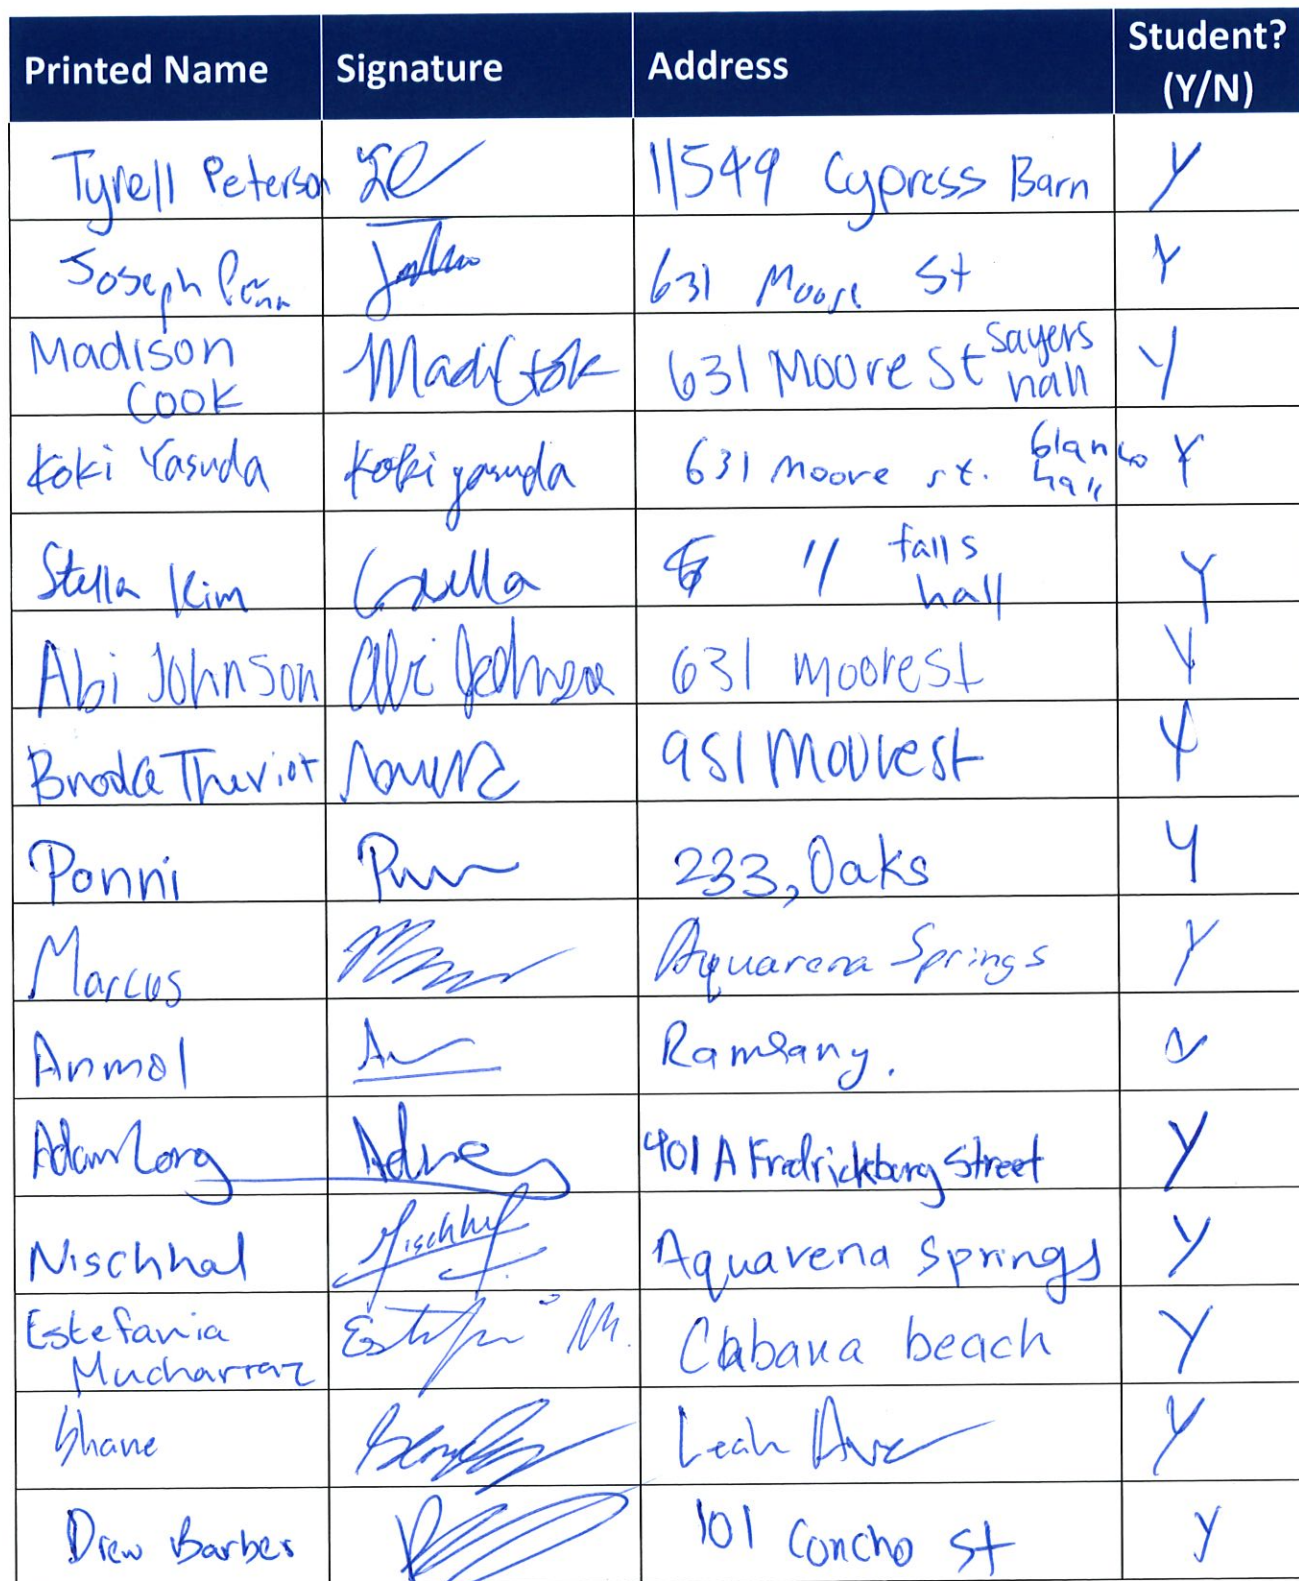 Printed Name Signature Address Student? (Y/N)
Tyrell Peterson 11549 Cypress Barn Y
Joseph Penn 631 Moore St Y
Madison Cook Madi Cook 631 Moore St Sayers hall Y
Koki Yasuda Koki yasuda 631 moore st. blanco hall Y
Stella Kim Stella " falls hall Y
Abi Johnson Abi Johnson 631 moore st Y
Theriot 951 Moore st Y
Ponni 233, Oaks Y
Marcus Aquarena Springs Y
Anmol N
Adam Long 401 A Fredrickburg Street Y
Nischhal Nischhal Aquarena Springs Y
Estefania Mucharraz M. Cabana beach Y
Shane Leah Ave Y
Drew Barber 101 Concho St y